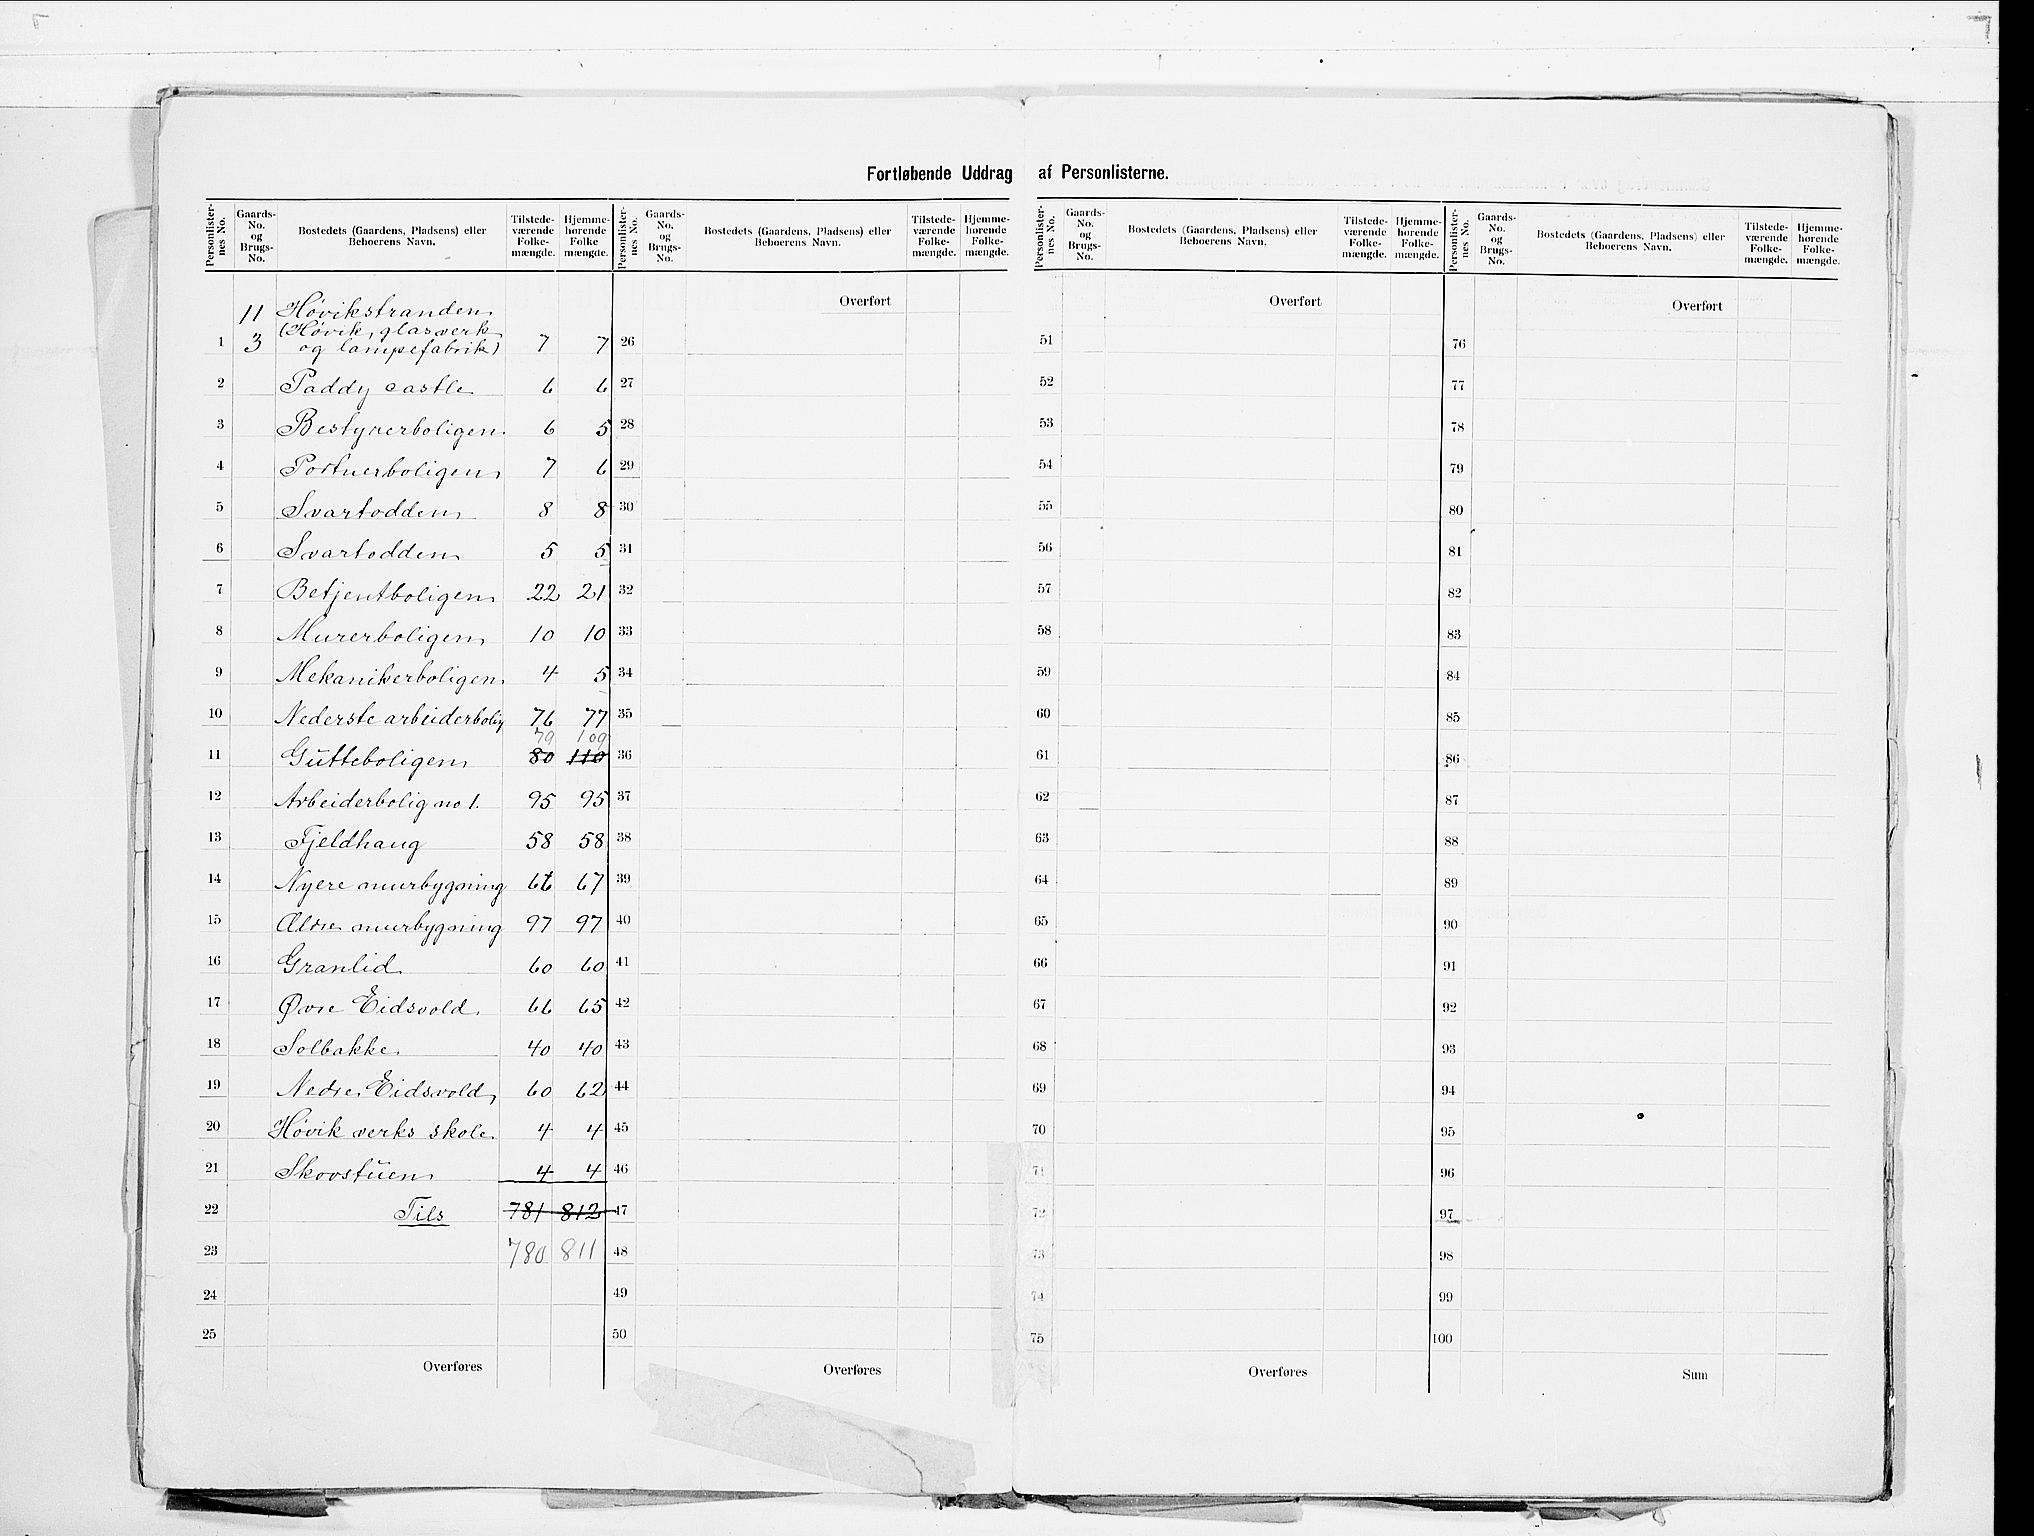 Fortløbende Uddrag af Personlisterne.
Personlister-nes No. Gaards-No. og Brugs-No. Bostedets (Gaardens, Pladsens) eller Beboerens Navn. Tilstede-værende Folke-mængde. Hjemme-hørende Folke mængde.
11 Høvikstranden
(Høvik, glasverk
1 3 og lampefabrik) 7 7
2 Paddy castle 6 6
3 Bestyrerboligen 6 5
4 Portnerboligen 7 6
5 Svartodden 8 8
6 Svartodden 5 5
7 Betjentboligen 22 21
8 Murerboligen 10 10
9 Mekanikerboligen 4 5
10 Nederste arbeiderbolig 76 77
79 109
11 Gutteboligen 80 110
12 Arbeiderbolig no 1. 95 95
13 Fjeldhaug 58 58
14 Nyere murbygning 66 67
15 Ældre murbygning 97 97
16 Granlid 60 60
17 Øvre Eidsvold 66 65
18 Solbakke 40 40
19 Nedre Eidsvold 60 62
20 Høvik verks skole 4 4
21 Skovstuen 4 4
22 Tils 781 812
23 780 811
24
25
Overføres
Personlister-nes No. Gaards-No. og Brugs-No. Bostedets (Gaardens, Pladsens) eller Beboerens Navn. Tilstede-værende Folke-mængde. Hjemme-hørende Folke-mængde.
Overført
26
27
28
29
30
31
32
33
34
35
36
37
38
39
40
41
42
43
44
45
46
47
48
49
50
Overføres
Personlister-nes No. Gaards-No. og Brugs-No. Bostedets (Gaardens, Pladsens) eller Beboerens Navn. Tilstede-værende Folke-mængde. Hjemme-hørende Folke-mængde.
Overført
51
52
53
54
55
56
57
58
59
60
61
62
63
64
65
66
67
68
69
70
71
72
73
74
75
Overføres
Personlister-nes No. Gaards-No. og Brugs-No. Bostedets (Gaardens, Pladsens) eller Beboerens Navn. Tilstede-værende Folke-mængde. Hjemme-hørende Folke-mængde.
Overført
76
77
78
79
80
81
82
83
84
85
86
87
88
89
90
91
92
93
94
95
96
97
98
99
100
Sum